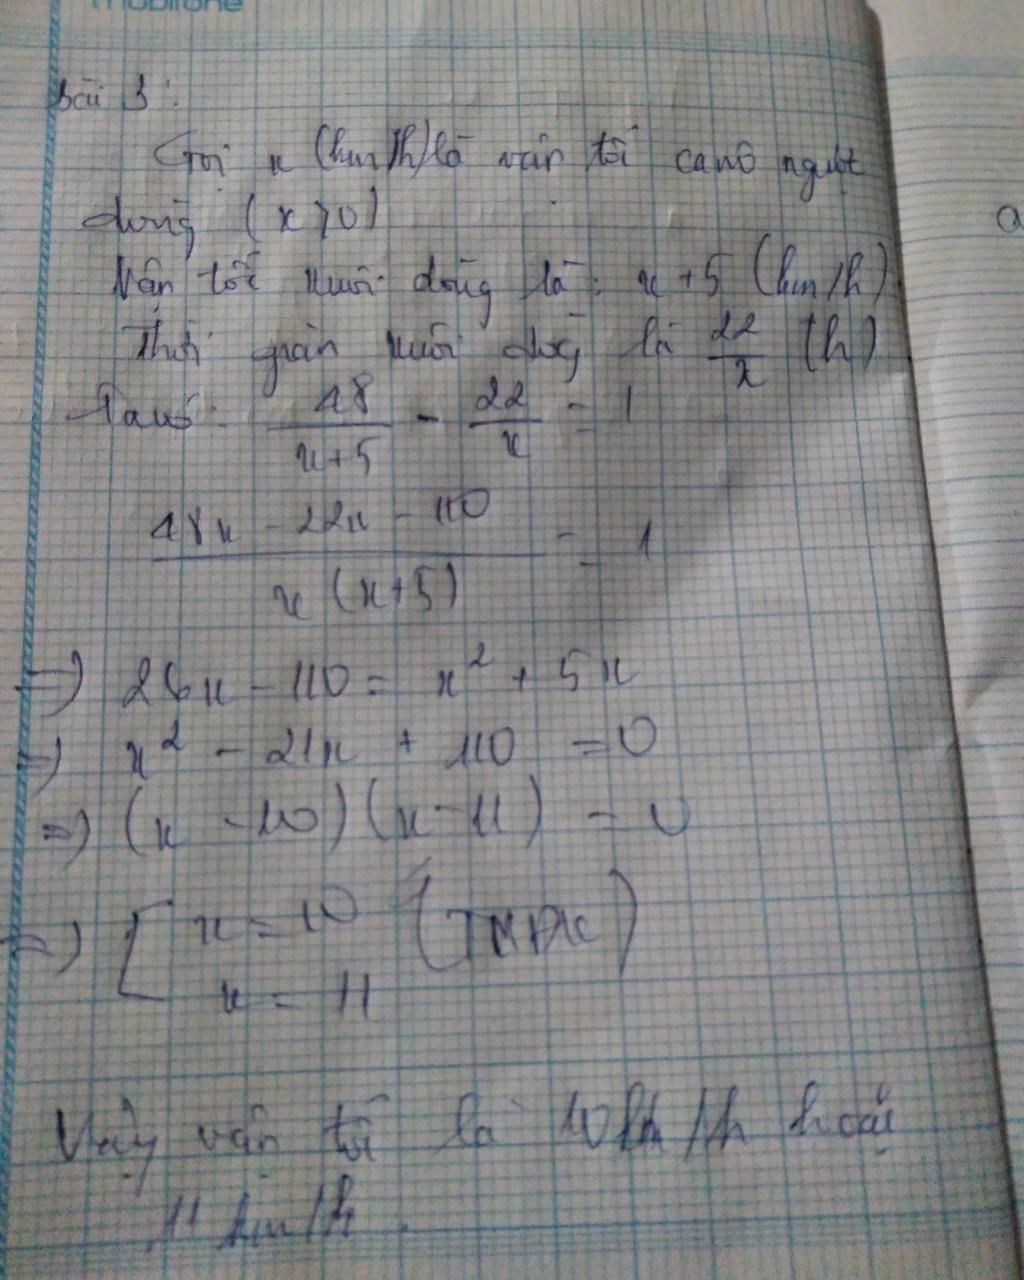 mobifone
Bài 3:
Gọi x (km/h) là vận tốc canô ngược
dòng (x>0)
Vận tốc xuôi dòng là: x+5 (km/h)
Thời gian xuôi dòng là 22/x (h)
Ta có: 48/(x+5) - 22/x = 1
(48x - 22x - 110)/(x(x+5)) = 1
=> 26x - 110 = x² + 5x
=> x² - 21x + 110 = 0
=> (x - 10)(x - 11) = 0
=> [ x = 10 (TMĐK)
x = 11
Vậy vận tốc là 10km/h hoặc
11 km/h.
a